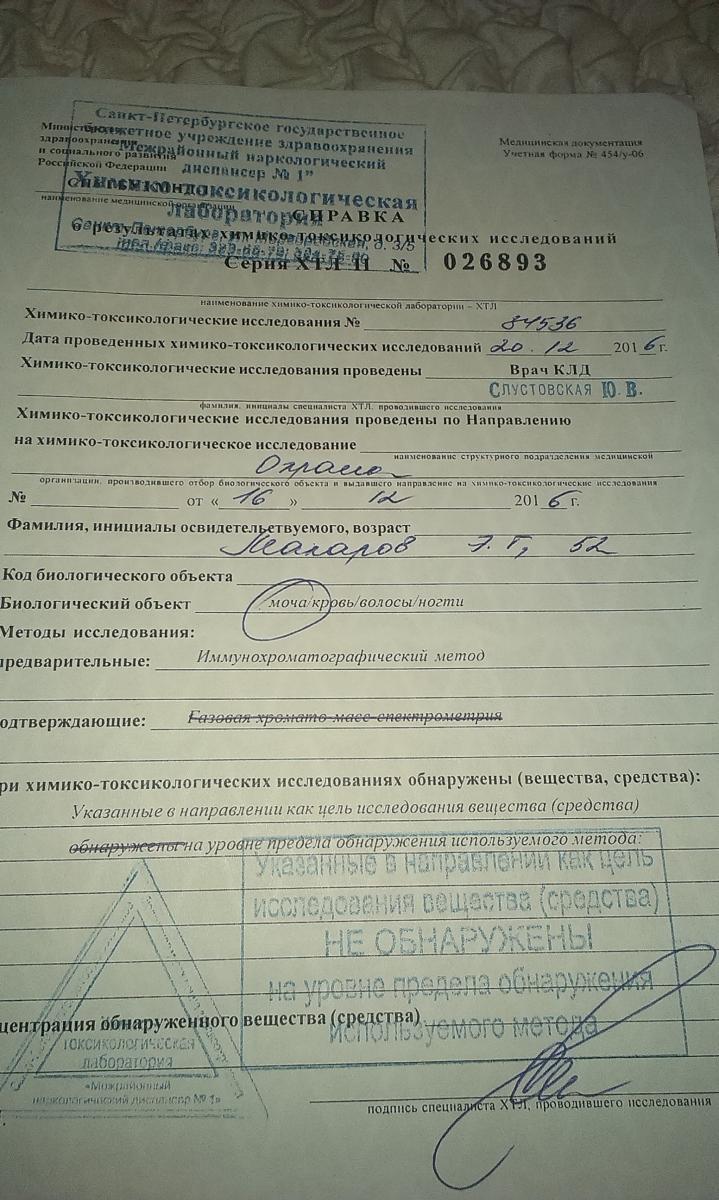 Санкт-Петербургское государственное
бюджетное учреждение здравоохранения
"Межрайонный наркологический
диспансер № 1"
Химико-токсикологическая
лаборатория
д. 3/5
тел./факс:
Министерство
здравоохранения
и социального развития
Российской Федерации
наименование медицинской организации
Медицинская документация
Учетная форма № 454/у-06
СПРАВКА
о результатах химико-токсикологических исследований
Серия ХТЛ 11 № 026893
наименование химико-токсикологической лаборатории – ХТЛ
Химико-токсикологические исследования № 84536
Дата проведенных химико-токсикологических исследований 20.12 2016 г.
Химико-токсикологические исследования проведены Врач КЛД
СЛУСТОВСКАЯ Ю. В.
фамилия, инициалы специалиста ХТЛ, проводившего исследования
Химико-токсикологические исследования проведены по Направлению
на химико-токсикологическое исследование
наименование структурного подразделения медицинской
Охрана
организации, производившего отбор биологического объекта и выдавшего направление на химико-токсикологические исследования
№ от « 16 » 12 2016 г.
Фамилия, инициалы освидетельствуемого, возраст
Макаров Э. Г, 52
Код биологического объекта
Биологический объект моча/кровь/волосы/ногти
Методы исследования:
предварительные: Иммунохроматографический метод
одтверждающие: Газовая хромато-масс-спектрометрия
ри химико-токсикологических исследованиях обнаружены (вещества, средства):
Указанные в направлении как цель исследования вещества (средства)
обнаружены на уровне предела обнаружения используемого метода:
Указанные в направлении как цель
исследования вещества (средства)
НЕ ОБНАРУЖЕНЫ
на уровне предела обнаружения
используемого метода
центрация обнаруженного вещества (средства)
токсикологическая
лаборатория
«Межрайонный
наркологический диспансер № 1»
подпись специалиста ХТЛ, проводившего исследования